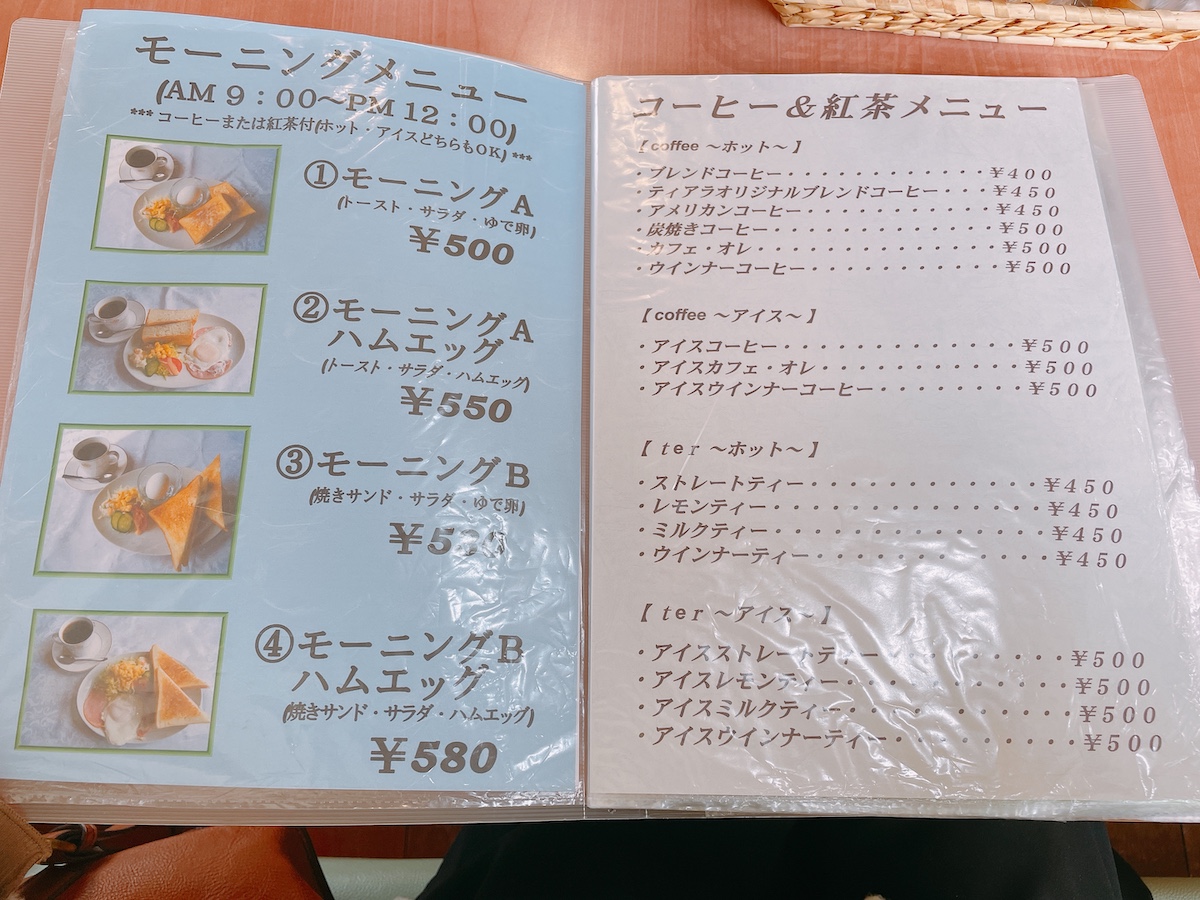 モーニングメニュー
(AM 9：00～PM 12：00)
*** コーヒーまたは紅茶付(ホット・アイスどちらもOK) ***
①モーニングA
(トースト・サラダ・ゆで卵)
￥500
②モーニングA
ハムエッグ
(トースト・サラダ・ハムエッグ)
￥550
③モーニングB
(焼きサンド・サラダ・ゆで卵)
④モーニングB
ハムエッグ
(焼きサンド・サラダ・ハムエッグ)
￥580
コーヒー＆紅茶メニュー
【 coffee ～ホット～ 】
・ブレンドコーヒー・・・・・・・・・・・・・￥400
・ティアラオリジナルブレンドコーヒー・・・￥450
・アメリカンコーヒー・・・・・・・・・・・・￥450
・炭焼きコーヒー・・・・・・・・・・・・・・￥500
・カフェ・オレ・・・・・・・・・・・・・・・￥500
・ウインナーコーヒー・・・・・・・・・・・・￥500
【 coffee ～アイス～ 】
・アイスコーヒー・・・・・・・・・・・・・・￥500
・アイスカフェ・オレ・・・・・・・・・・・・￥500
・アイスウインナーコーヒー・・・・・・・・・￥500
【 ter ～ホット～ 】
・ストレートティー・・・・・・・・・・・・・￥450
・レモンティー・・・・・・・・・・・・・・・￥450
・ミルクティー・・・・・・・・・・・・・・・￥450
・ウインナーティー・・・・・・・・・・・・・￥450
【 ter ～アイス～ 】
・アイスストレートティー・・・・・・・・・・￥500
・アイスレモンティー・・・・・・・・・・・・￥500
・アイスミルクティー・・・・・・・・・・・・￥500
・アイスウインナーティー・・・・・・・・・・￥500